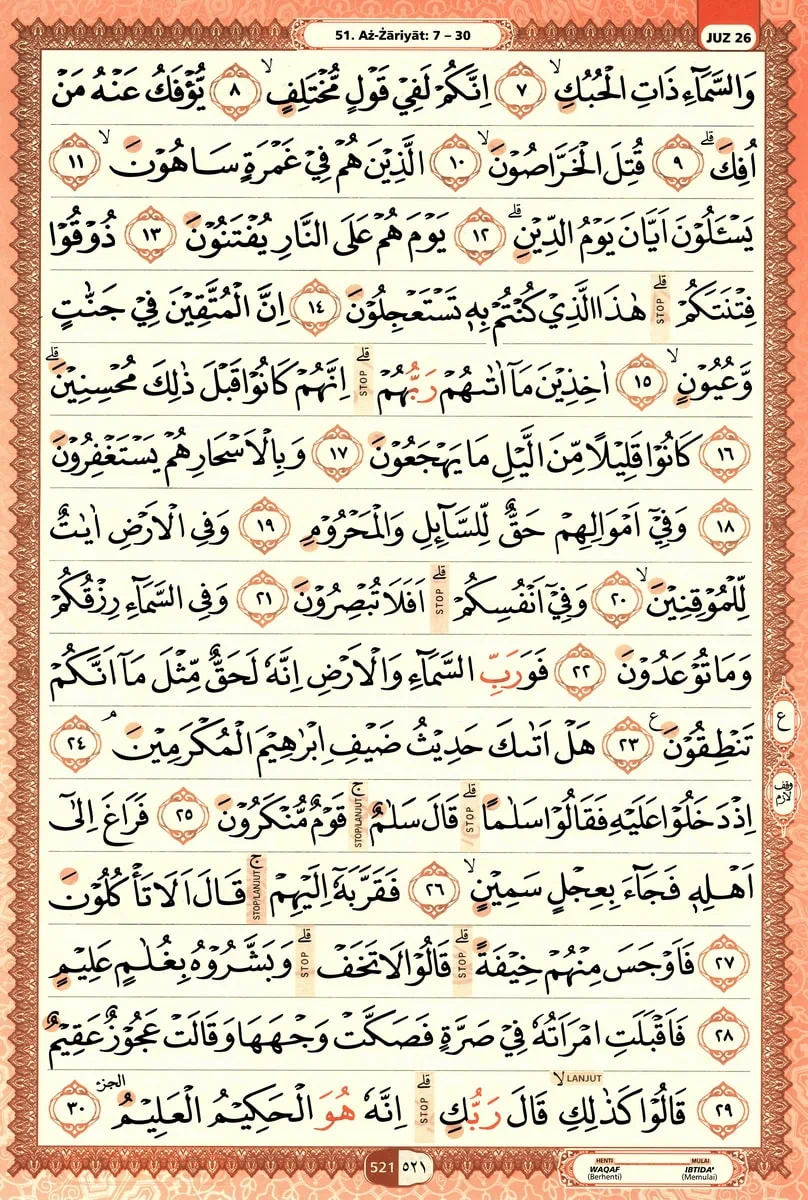 51. Aż-Żāriyāt: 7 – 30
JUZ 26
وَالسَّمَاۤءِ ذَاتِ الْحُبُكِۙ ٧ اِنَّكُمْ لَفِيْ قَوْلٍ مُّخْتَلِفٍۙ ٨ يُّؤْفَكُ عَنْهُ مَنْ
اُفِكَۗ ٩ قُتِلَ الْخَرَّاصُوْنَۙ ١٠ الَّذِيْنَ هُمْ فِيْ غَمْرَةٍ سَاهُوْنَۙ ١١
يَسْـَٔلُوْنَ اَيَّانَ يَوْمُ الدِّيْنِۗ ١٢ يَوْمَ هُمْ عَلَى النَّارِ يُفْتَنُوْنَ ١٣ ذُوْقُوْا
فِتْنَتَكُمْۗ STOP هٰذَا الَّذِيْ كُنْتُمْ بِهٖ تَسْتَعْجِلُوْنَ ١٤ اِنَّ الْمُتَّقِيْنَ فِيْ جَنّٰتٍ
وَّعُيُوْنٍۙ ١٥ اٰخِذِيْنَ مَآ اٰتٰىهُمْ رَبُّهُمْۗ STOP اِنَّهُمْ كَانُوْا قَبْلَ ذٰلِكَ مُحْسِنِيْنَۗ
١٦ كَانُوْا قَلِيْلًا مِّنَ الَّيْلِ مَا يَهْجَعُوْنَ ١٧ وَبِالْاَسْحَارِ هُمْ يَسْتَغْفِرُوْنَ
١٨ وَفِيْٓ اَمْوَالِهِمْ حَقٌّ لِّلسَّاۤىِٕلِ وَالْمَحْرُوْمِ ١٩ وَفِى الْاَرْضِ اٰيٰتٌ
لِّلْمُوْقِنِيْنَۙ ٢٠ وَفِيْٓ اَنْفُسِكُمْۗ STOP اَفَلَا تُبْصِرُوْنَ ٢١ وَفِى السَّمَاۤءِ رِزْقُكُمْ
وَمَا تُوْعَدُوْنَ ٢٢ فَوَرَبِّ السَّمَاۤءِ وَالْاَرْضِ اِنَّهٗ لَحَقٌّ مِّثْلَ مَآ اَنَّكُمْ
تَنْطِقُوْنَ ع ٢٣ هَلْ اَتٰىكَ حَدِيْثُ ضَيْفِ اِبْرٰهِيْمَ الْمُكْرَمِيْنَۘ ٢٤
ع
وقف لازم
اِذْ دَخَلُوْا عَلَيْهِ فَقَالُوْا سَلٰمًاۗ STOP قَالَ سَلٰمٌۚ STOP/LANJUT قَوْمٌ مُّنْكَرُوْنَ ٢٥ فَرَاغَ اِلٰٓى
اَهْلِهٖ فَجَاۤءَ بِعِجْلٍ سَمِيْنٍۙ ٢٦ فَقَرَّبَهٗٓ اِلَيْهِمْۚ STOP/LANJUT قَالَ اَلَا تَأْكُلُوْنَ
٢٧ فَاَوْجَسَ مِنْهُمْ خِيْفَةًۗ STOP قَالُوْا لَا تَخَفْۗ STOP وَبَشَّرُوْهُ بِغُلٰمٍ عَلِيْمٍ
٢٨ فَاَقْبَلَتِ امْرَاَتُهٗ فِيْ صَرَّةٍ فَصَكَّتْ وَجْهَهَا وَقَالَتْ عَجُوْزٌ عَقِيْمٌ
٢٩ قَالُوْا كَذٰلِكِۙ LANJUT قَالَ رَبُّكِۗ STOP اِنَّهٗ هُوَ الْحَكِيْمُ الْعَلِيْمُ الجزء ٣٠
521 ٥٢١
HENTI WAQAF (Berhenti)
MULAI IBTIDA' (Memulai)